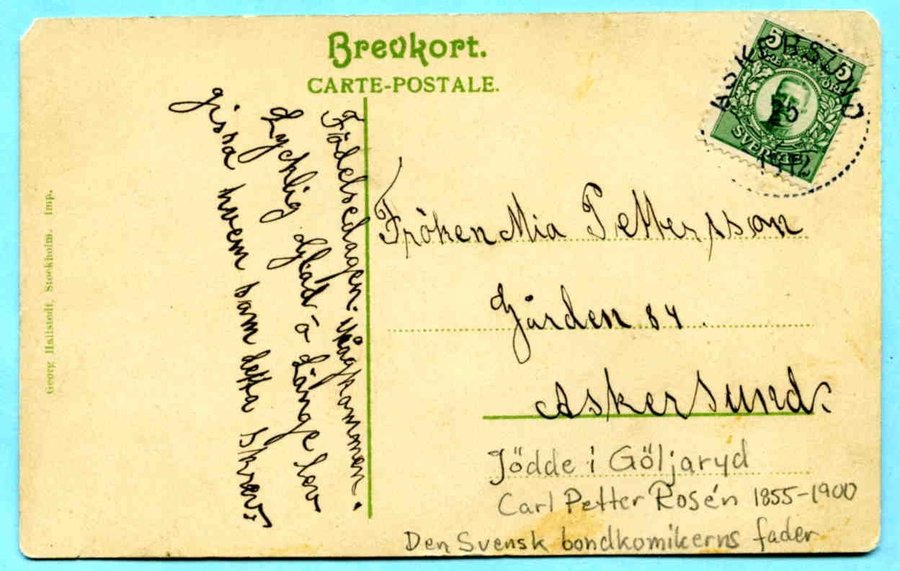 Brevkort.
CARTE-POSTALE.
5 5
SVERIGE
ASKERSUND
25
1912
Födelsedagen ihågkommen.
Lycklig Glad o Länge lev
gissa hvem som detta Skrev,
Fröken Mia Pettersson
Gården 84.
Askersund.
Jödde i Göljaryd
Carl Petter Rosén 1855-1900
Den Svensk bondkomikerns fader
Georg Hallstedt, Stockholm. Imp.